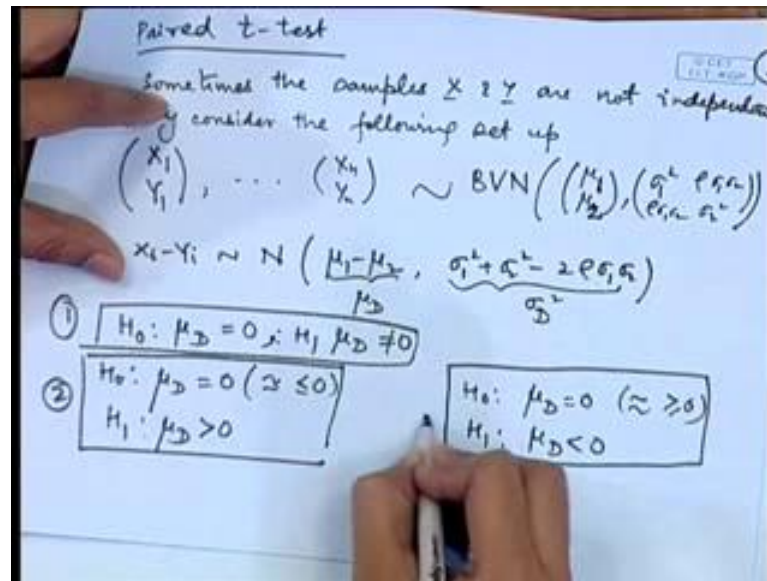 Paired t-test
Sometimes the samples X & Y are not independen
consider the following set up
(X₁ Y₁), ... (Xₙ Yₙ) ~ BVN((μ₁ μ₂), (σ₁² ρσ₁σ₂ ρσ₁σ₂ σ₂²))
Xᵢ-Yᵢ ~ N(μ₁-μ₂, σ₁²+σ₂²-2ρσ₁σ₂)
μ_D σ_D²
① H₀: μ_D = 0, H₁ μ_D ≠ 0
② H₀: μ_D = 0 (≃ ≤0)
H₁: μ_D > 0
H₀: μ_D = 0 (≈ ≥0)
H₁: μ_D < 0